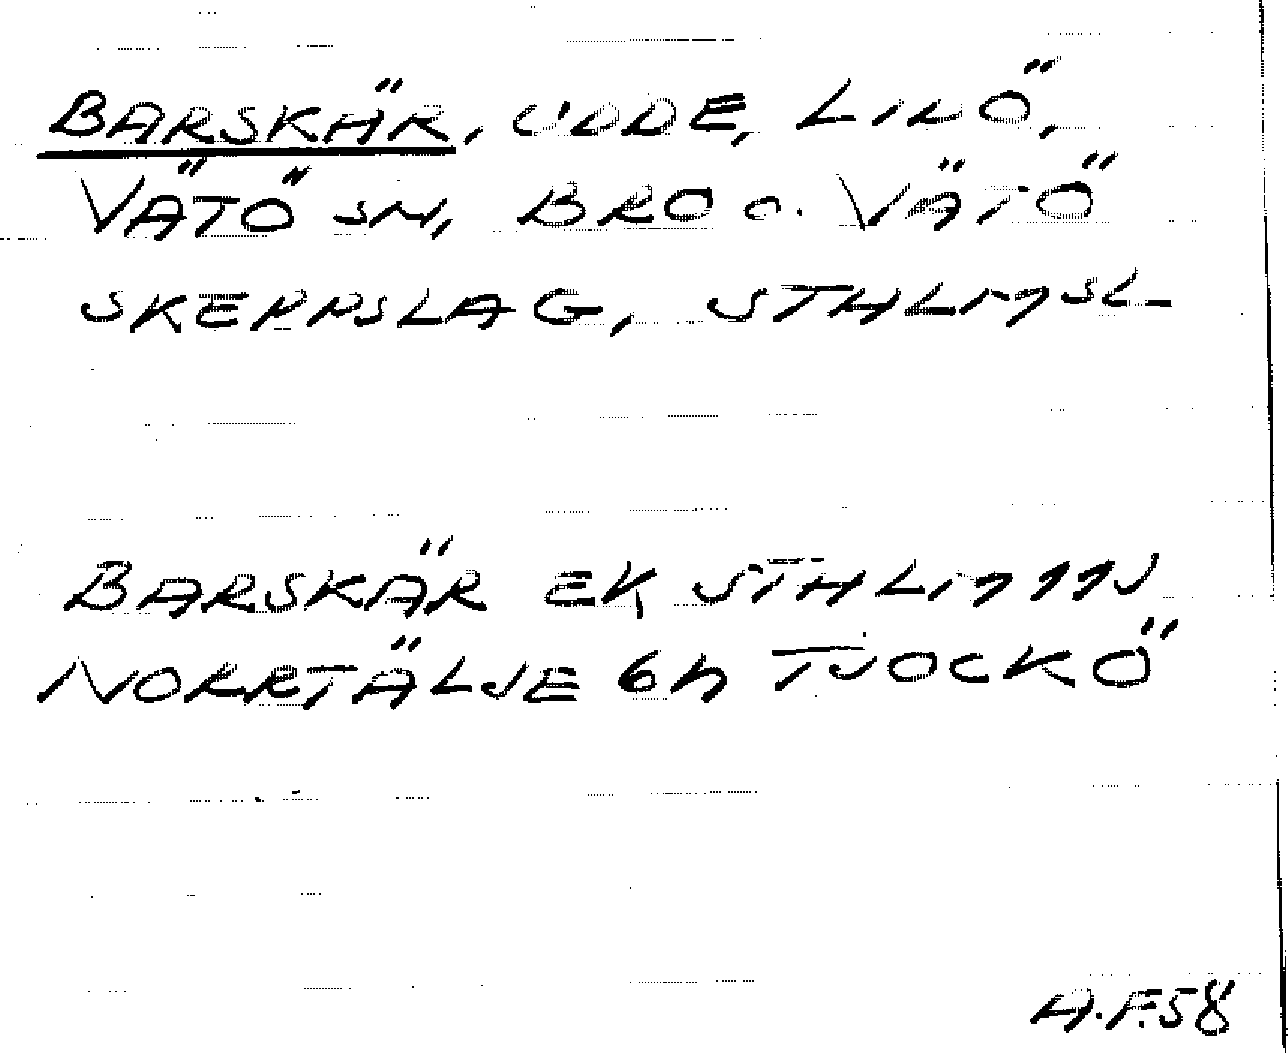 BARSKÄR, UDDE, LIDÖ,
VÄTÖ SN, BRO O. VÄTÖ
SKEPPSLAG, STHLMSL
BARSKÄR EK STHLM NV
NORRTÄLJE 6h TJOCKÖ
A.F.58